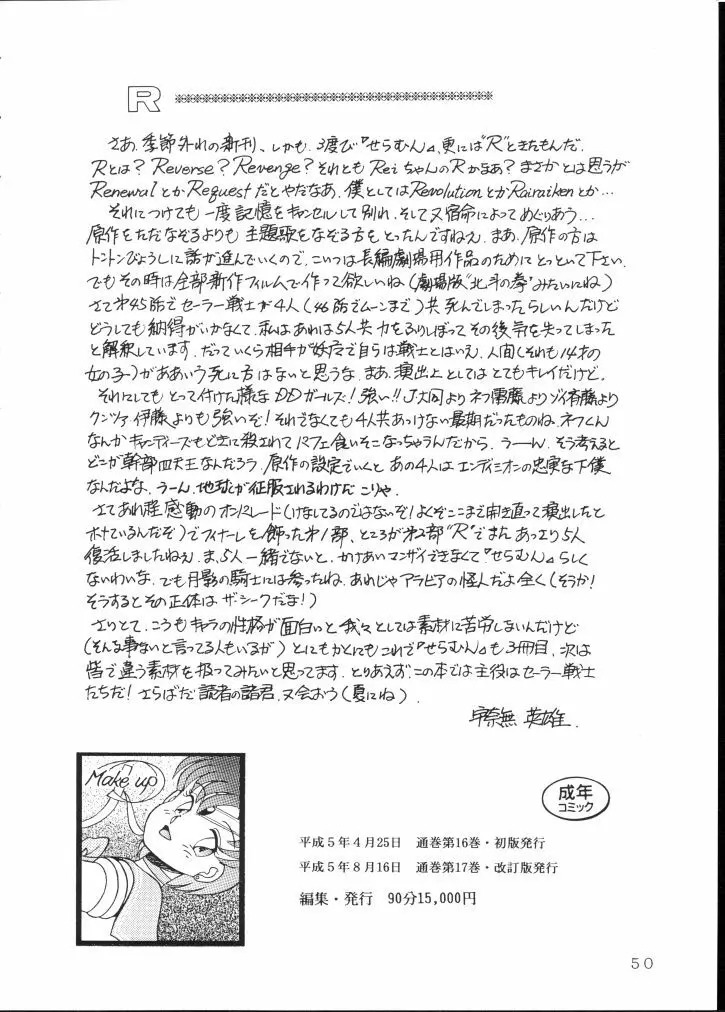 R
さあ、季節外れの新刊、しかも、3度び『せらむん』、更には"R"ときたもんだ。
Rとは？Reverse？Revenge？それとも Reiちゃんの Rかなあ？まさかとは思うが
RenewalとかRequestだとやだなあ、僕としてはRevolutionとかRairaikenとか…
それにつけても 一度記憶をキャンセルして別れ、そして又宿命によってめぐりあう…
原作をただなぞるよりも 主題歌をなぞる方をとったんですねえ、まあ、原作の方は
トントンびょうしに話が進んでいくので、こいつは長編劇場用作品のためにとっといて下さい。
でもその時は全部新作フィルムで作って欲しいね（劇場版"北斗の拳"みたいにね）
さて第45話でセーラー戦士が4人（46話でムーンまで）共 死んでしまったらしいんだけど
どうしても納得がいかなくて、私はあれは5人共 力をふりしぼって その後気を失ってしまった
と解釈しています。だっていくら相手が妖魔で自らは戦士とはいえ、人間（それも14才の
女の子）がああいう死に方はないと思うな。まあ、演出上としてはとてもキレイだけど。
それにしても とって付けた様なDDガールズ！強い!!J大同よりネフ雷藤よりゾイ斉藤より
クンツァ伊藤よりも強いぞ！それでなくても4人共あっけない最期だったものね、ネフくん
なんかキャンディーズもどきに殺されてパフェ食いそこなっちゃうんだから、うーん、そう考えると
どこが幹部四天王なんだろう、原作の設定でいくと あの4人は エンディミオンの忠実な下僕
なんだよな、うーん、地球が征服されるわけだ こりゃ。
さてあれ程感動のオンパレード（けなしてるのではないぞ！よくぞここまで開き直って演出したと
ホメているんだぞ）でフィナーレを飾った第1部、ところが第2部"R"でまた あっさり5人
復活しましたねえ、ま、5人一緒でないと、かけあいマンザイできなくて『せらむん』らしく
ないわいな、でも月影の騎士には参ったね、あれじゃアラビアの怪人だよ全く（そうか！
そうするとその正体は ザ・シークだな！）
さりとて、こうもキャラの性格が面白いと 我々としては素材に苦労しないんだけど
（そんな事ないと言ってる人もいるが）とにもかくにもこれで『せらむん』も3冊目、次は
皆で違う素材を扱ってみたいと思ってます、とりあえず、この本では主役はセーラー戦士
たちだ！さらばだ読者の諸君、又会おう（夏にね）
宇奈無 英雄.
Make up
成年
コミック
平成5年4月25日 通巻第16巻・初版発行
平成5年8月16日 通巻第17巻・改訂版発行
編集・発行 90分15,000円
50